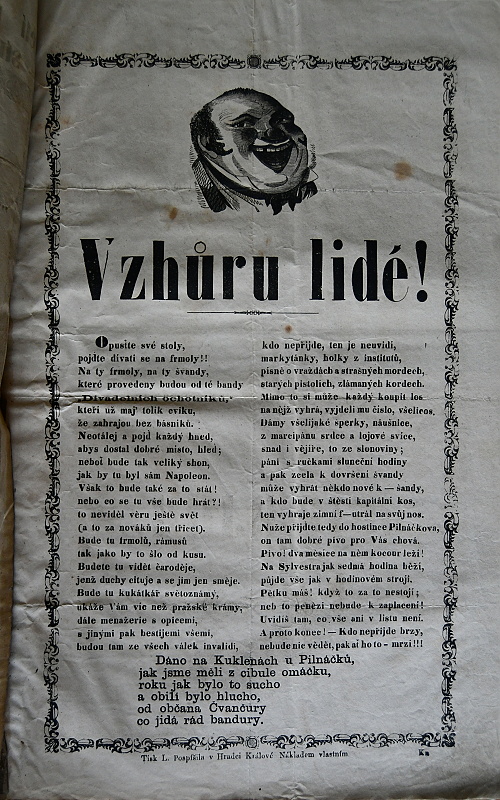 Vzhůru lidé!
Opusťte své stoly,
pojďte dívati se na frmoly!!
Na ty frmoly, na ty švandy,
které provedeny budou od té bandy
Divadelních ochotníků,
kteří už maj' tolik cviku,
že zahrajou bez básníků.
Neotálej a pojď každý hned,
abys dostal dobré místo, hled;
neboť bude tak veliký shon,
jak by tu byl sám Napoleon.
Však to bude také za to stát!
nebo co se tu vše bude hrát?!
to neviděl věru ještě svět
(a to za nováků jen třicet).
Bude tu frmolů, rámusů
tak jako by to šlo od kusu.
Budete tu vidět čaroděje,
jenž duchy cituje a se jim jen směje.
Bude tu kukátkář světoznámý,
ukáže Vám víc než pražské krámy,
dále menažerie s opicemi,
s jinými pak bestijemi všemi,
budou tam ze všech válek invalidi,
kdo nepřijde, ten je neuvidí,
markytánky, holky z institutů,
písně o vraždách a strašných mordech,
starých pistolích, zlámaných kordech.
Mimo to si může každý koupit los
na nějž vyhrá, vyjdeli mu číslo, všelicos.
Dámy všelijaké šperky, náušnice,
z marcipánu srdce a lojové svíce,
snad i vějíře, to ze slonoviny;
páni s ručkami sluneční hodiny
a pak zcela k dovršení švandy
může vyhrát někdo nové k — šandy,
a kdo bude v štěstí kapitální kos,
ten vyhraje zimní f—utrál na svůj nos.
Nuže přijďte tedy do hostince Pilnáčkova,
on tam dobré pivo pro Vás chová.
Pivo! dva měsíce na něm kocour leží!
Na Sylvestra jak sedmá hodina běží,
půjde vše jak v hodinovém stroji.
Pětku máš! když to za to nestojí;
neb to penězi nebude k zaplacení!
Uvidíš tam, co vše ani v listu není.
A proto konec! — Kdo nepřijde brzy,
nebude nic vědět, pak ať ho to - mrzí!!!
Dáno na Kuklenách u Pilnáčků,
jak jsme měli z cibule omáčku,
roku jak bylo to sucho
a obilí bylo hlucho,
od občana Čvančury
co jidá rád bandury.
Tisk L. Pospíšila v Hradci Králové Nákladem vlastním